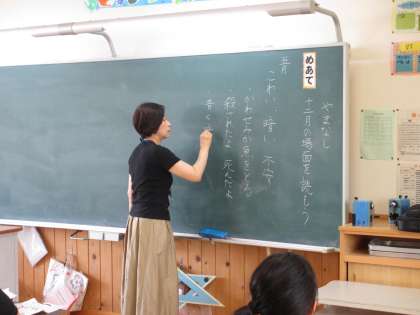 やまなし
めあて
十二月の場面を読もう
五月
こわい、暗い 不安
・かわせみが魚をとる
殺されたよ 死んだよ
・青く